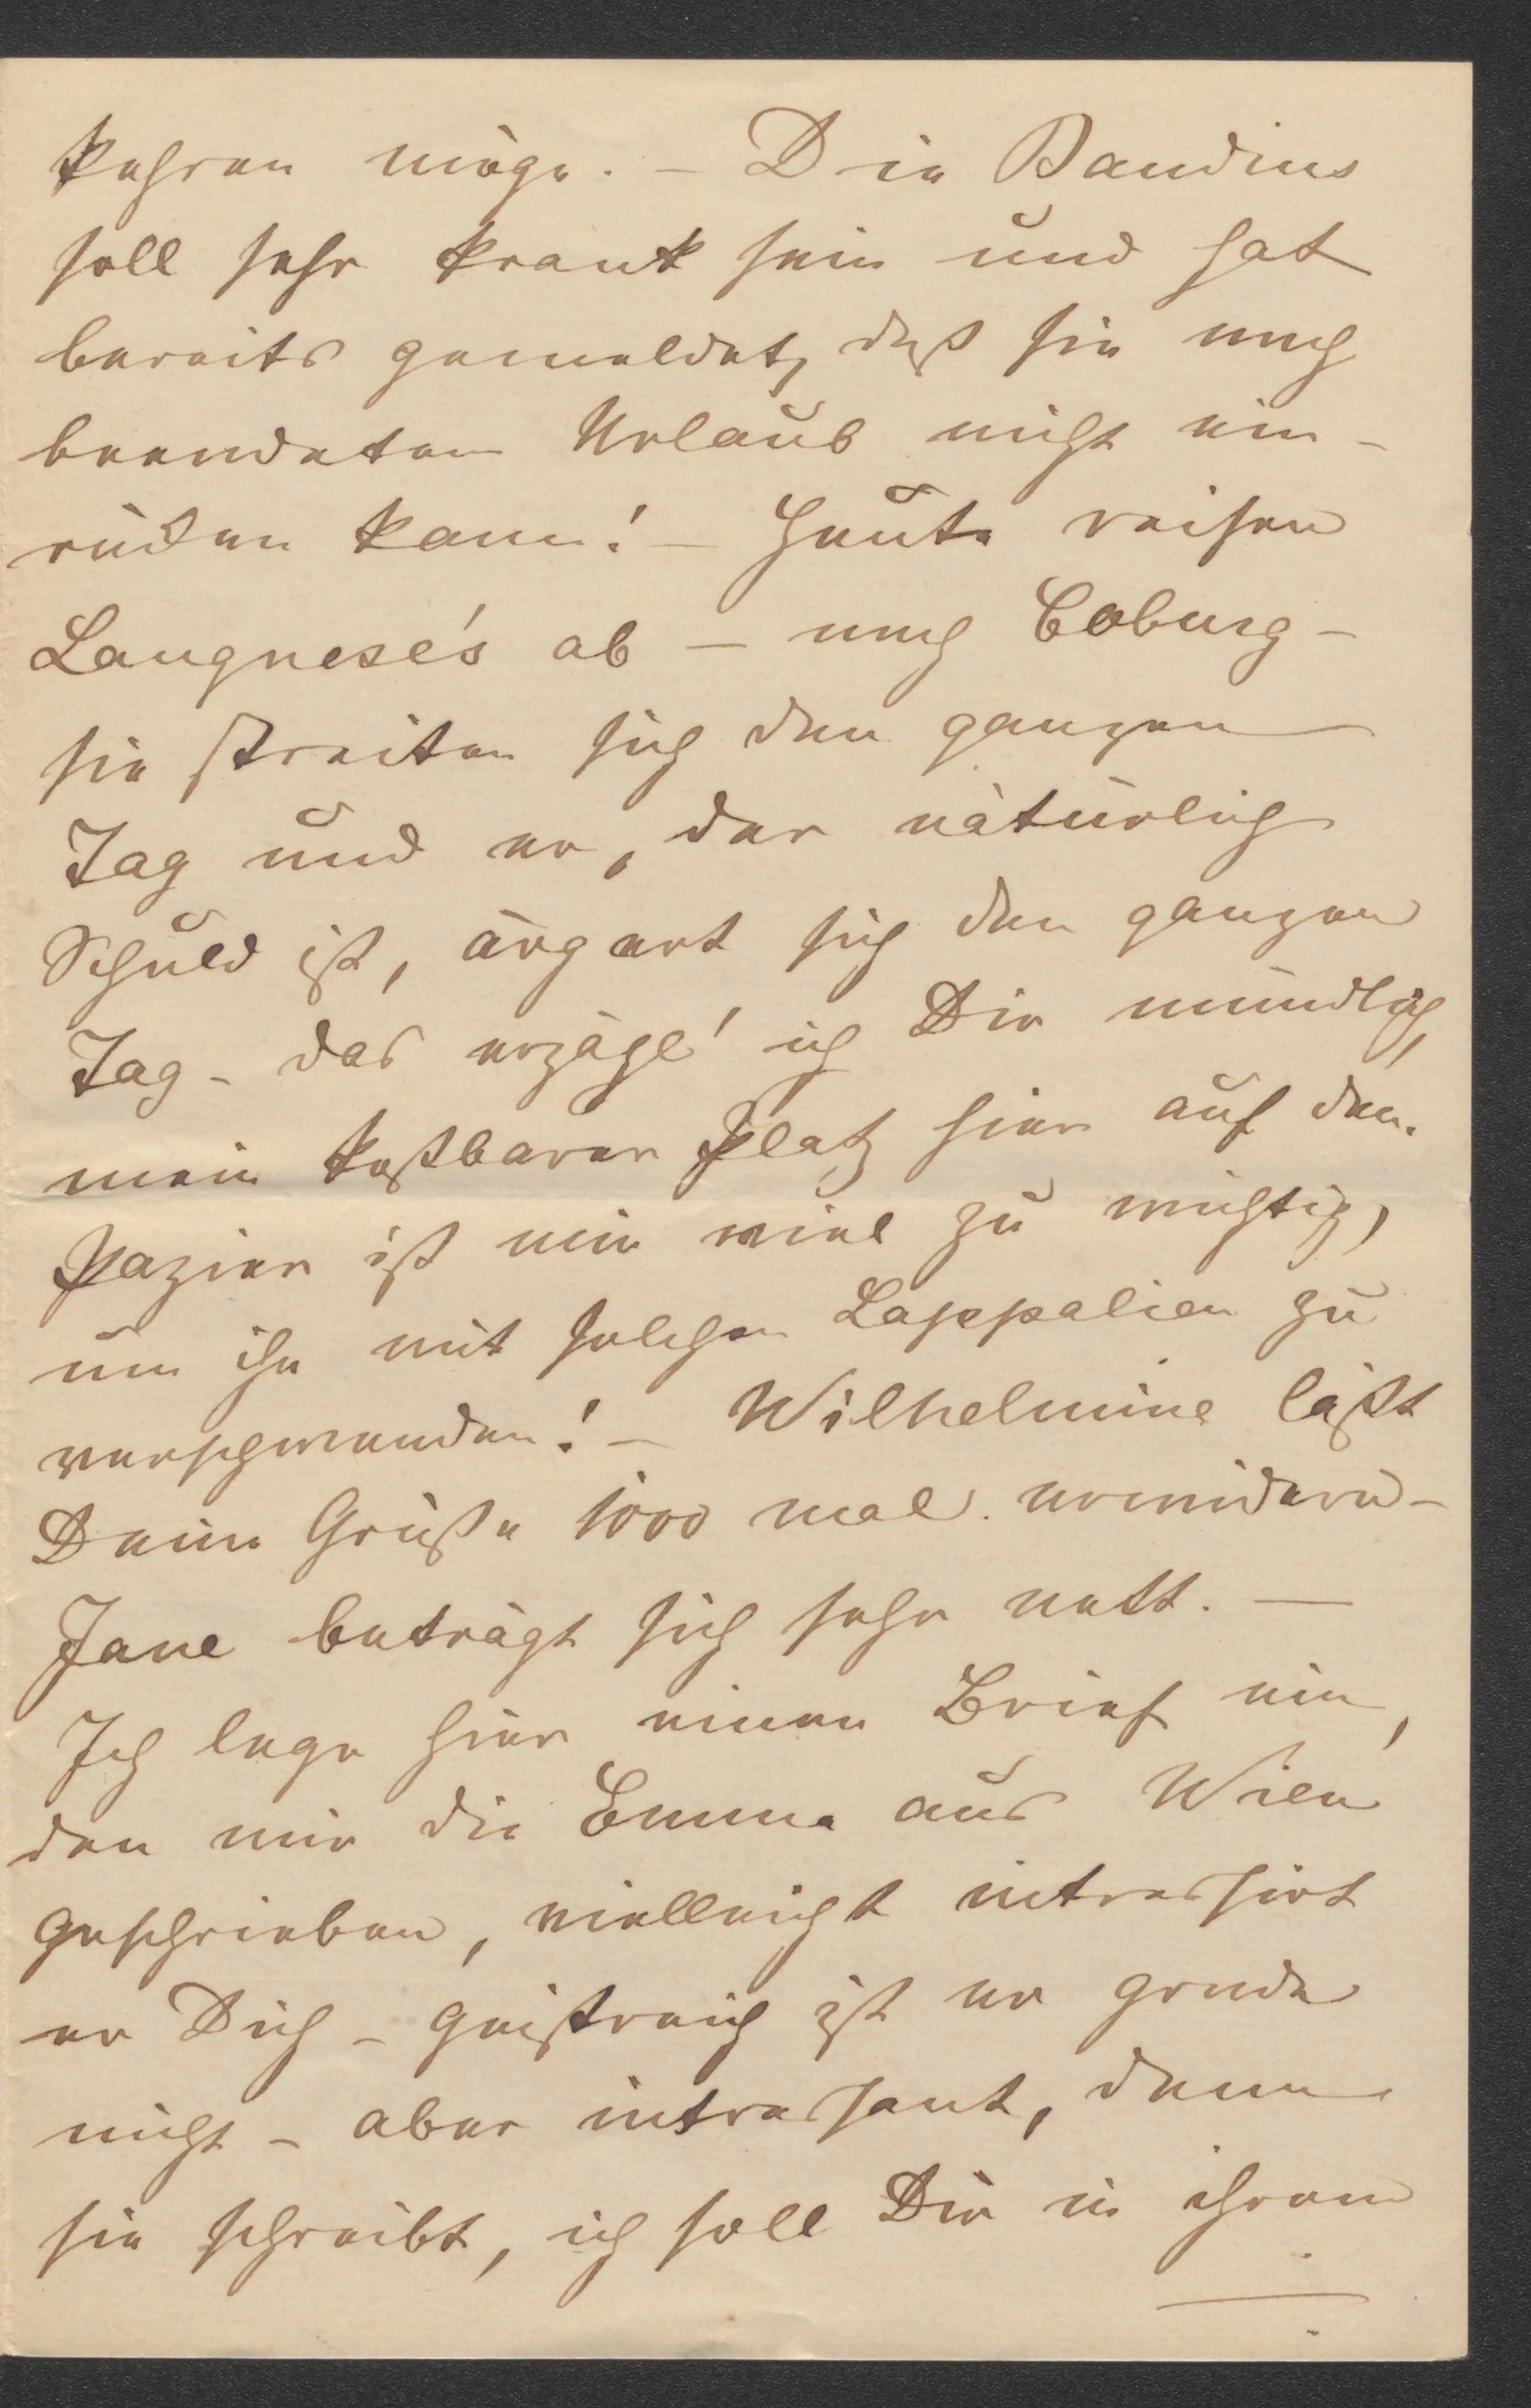 kehren möge. – Die Baudius
soll sehr krank sein und hat
bereits gemeldet, daß sie nach
beendetem Urlaub nicht ein-
rücken kann! – Heute reisen
Langnese's ab – nach Coburg –
sie streiten sich den ganzen
Tag und er, der natürlich
Schuld ist, ärgert sich den ganzen
Tag – das erzähl' ich Dir mündlich,
mein kostbarer Platz hier auf dem
Papier ist mir viel zu wichtig,
um ihn mit solchen Lappalien zu
verschwenden! – Wilhelmine läßt
Deine Grüße 1000 mal erwidern –
Jane beträgt sich sehr nett. —
Ich lege hier einen Brief ein,
den mir die Emma aus Wien
geschrieben, vielleicht intressirt
er Dich – geistreich ist er grade
nicht – aber intressant, denn
sie schreibt, ich soll Dir in ihrem